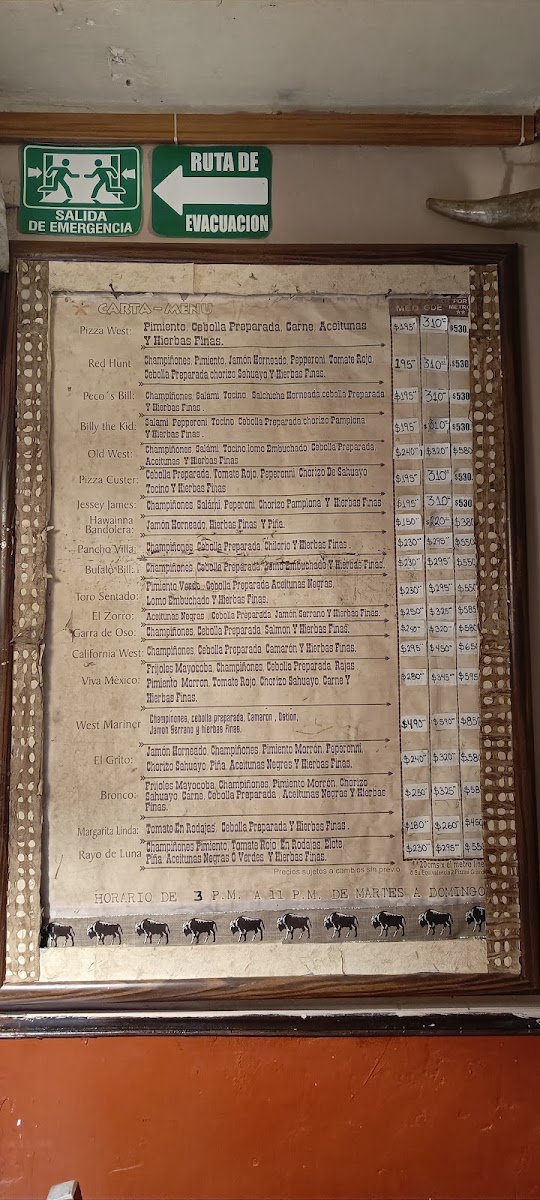 SALIDA
DE EMERGENCIA
RUTA DE
EVACUACION
CARTA-MENU MED GDE POR METRO
Pizza West: Pimiento, Cebolla Preparada, Carne, Aceitunas
Y Hierbas Finas. $195 310 $530
Red Hunt Champiñones, Pimiento, Jamón Horneado, Pepperoni, Tomate Rojo,
Cebolla Preparada chorizo Sahuayo Y Hierbas Finas. 195 310 $530
Peco´s Bill: Champiñones, Salami, Tocino, Salchicha Horneada cebolla Preparada
Y Hierbas Finas. $195 310 $530
Billy the Kid: Salami, Pepperoni, Tocino, Cebolla Preparada chorizo Pamplona
Y Hierbas Finas. $195 310 $530
Old West: Champiñones, Salami, Tocino lomo Embuchado, Cebolla Preparada,
Aceitunas Y Hierbas Finas $240 $320 $580
Pizza Custer: Cebolla Preparada, Tomate Rojo, Peperonni, Chorizo De Sahuayo
Tocino Y Hierbas Finas $195 310 $530
Jessey James: Champiñones, Salami, Peperoni, Chorizo Pamplona Y Hierbas Finas $195 310 $530
Hawainna
Bandolera: Jamón Horneado, Hierbas Finas Y Piña. $150 $380
Pancho Villa: Champiñones, Cebolla Preparada, Chilorio Y Hierbas Finas. $230 $295 $550
Bufalo Bill: Champiñones, Cebolla Preparada, Lomo Embuchado Y Hierbas Finas. $230 $295 $550
Toro Sentado: Pimiento Verde, Cebolla Preparada Aceitunas Negras,
Lomo Embuchado Y Hierbas Finas. $230 $295 $550
El Zorro: Aceitunas Negras, Cebolla Preparada, Jamón Serrano Y Hierbas Finas. $250 $325 $585
Garra de Oso: Champiñones, Cebolla Preparada, Salmon Y Hierbas Finas. $240 $320 $580
California West Champiñones, Cebolla Preparada, Camarón Y Hierbas Finas. $295 $450 $650
Viva México: Frijoles Mayocoba, Champiñones, Cebolla Preparada, Rajas
Pimiento Morron, Tomate Rojo, Chorizo Sahuayo, Carne Y
Hierbas Finas. $280 $345 $595
West Mariner Champiñones, cebolla preparada, Camaron, Ostion,
Jamon Serrano y hierbas finas. $490 $590
El Grito: Jamón Horneado, Champiñones, Pimiento Morrón, Peperonni,
Chorizo Sahuayo, Piña, Aceitunas Negras Y Hierbas Finas. $240 $320 $580
Bronco: Frijoles Mayocoba, Champiñones, Pimiento Morrón, Chorizo
Sahuayo, Carne, Cebolla Preparada, Aceitunas Negras Y Hierbas
Finas. $250 $325
Margarita Linda: Tomate En Rodajas, Cebolla Preparada Y Hierbas Finas. $180 $260
Rayo de Luna Champiñones Pimiento, Tomate Rojo En Rodajas, Elote
Piña, Aceitunas Negras O Verdes Y Hierbas Finas. $230 $295 $550
Precios sujetos a cambios sin previo
**20cms x el metro
HORARIO DE 3 P.M. A 11 P.M. DE MARTES A DOMINGO